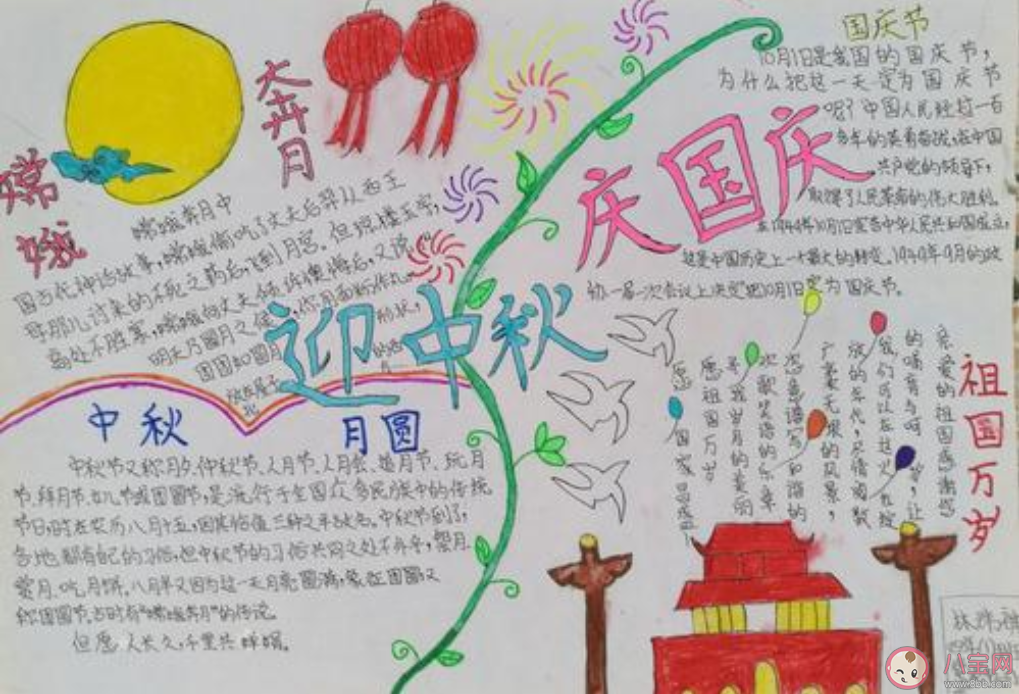 嫦娥
奔月
嫦娥奔月中
国古代神话故事,嫦娥偷吃了丈夫后羿从西王
母那儿讨来的不死之药后,飞到月宫。但琼楼玉宇,
高处不胜寒,嫦娥向丈夫倾诉懊悔后,又说
明天乃圆月之候,你用面粉作丸,
团团如圆月形状,
放在屋子
迎中秋
庆国庆
国庆节
10月1日是我国的国庆节,
为什么把这一天定为国庆节
呢?中国人民经过一百
多年的英勇奋战,在中国
共产党的领导下,
取得了人民革命的伟大胜利。
在1949年10月1日宣告中华人民共和国成立,
这是中国历史上一个最大的转变、1949年9月的政
协一届一次会议上决定把10月1日定为国庆节。
中秋
月圆
中秋节又称月夕、仲秋节、八月节、八月会、追月节、玩月
节、拜月节、女儿节或团圆节,是流行于全国众多民族中的传统
节日,时在农历八月十五,因其恰值三秋之半,故名。中秋节到了,
各地都有自己的习俗,但中秋节的习俗共同之处不外乎,祭月、
赏月、吃月饼。八月半又因为这一天月亮圆满,象征团圆又
称团圆节。古时有“嫦娥奔月”的传说。
但愿人长久,千里共婵娟。
祖国万岁
亲爱的祖国感谢您
的哺育与呵
让
我们可以在这火
放的年代,尽情阅载
广袤无垠的风景,
您的
次歌笑语的乐章
岁月的美丽
愿祖国万岁
愿
国家
八宝网
www.8bb.com